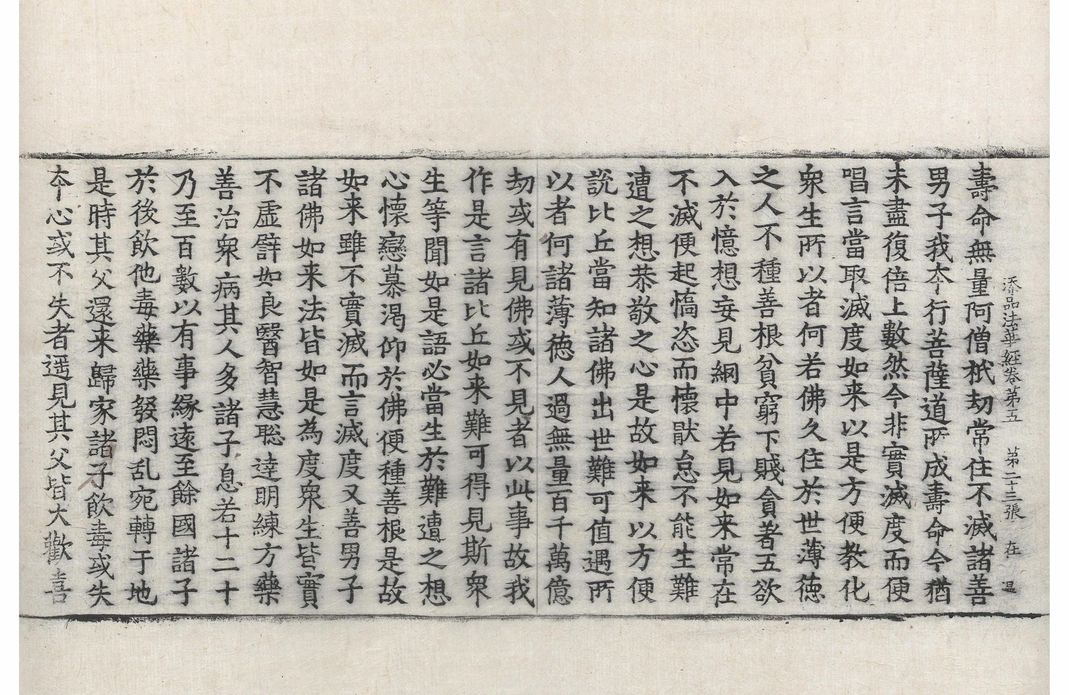 添品法華經卷第五 第二十三張 在
壽命無量阿僧祇劫常住不滅諸善
男子我夲行菩薩道所成壽命今猶
未盡復倍上數然今非實滅度而便
唱言當取滅度如来以是方便教化
衆生所以者何若佛久住於世薄德
之人不種善根貧窮下賤貪著五欲
入於憶想妄見網中若見如来常在
不滅便起憍恣而懷猒怠不能生難
遭之想恭敬之心是故如来以方便
說比丘當知諸佛出世難可值遇所
以者何諸薄德人過無量百千萬億
劫或有見佛或不見者以此事故我
作是言諸比丘如来難可得見斯衆
生等聞如是語必當生於難遭之想
心懷戀慕渴仰於佛便種善根是故
如来雖不實滅而言滅度又善男子
諸佛如来法皆如是為度衆生皆實
不虛譬如良醫智慧聡達明練方藥
善治衆病其人多諸子息若十二十
乃至百數以有事緣遠至餘國諸子
於後飲他毒藥藥發悶乱宛轉于地
是時其父還来歸家諸子飲毒或失
夲心或不失者遥見其父皆大歡喜